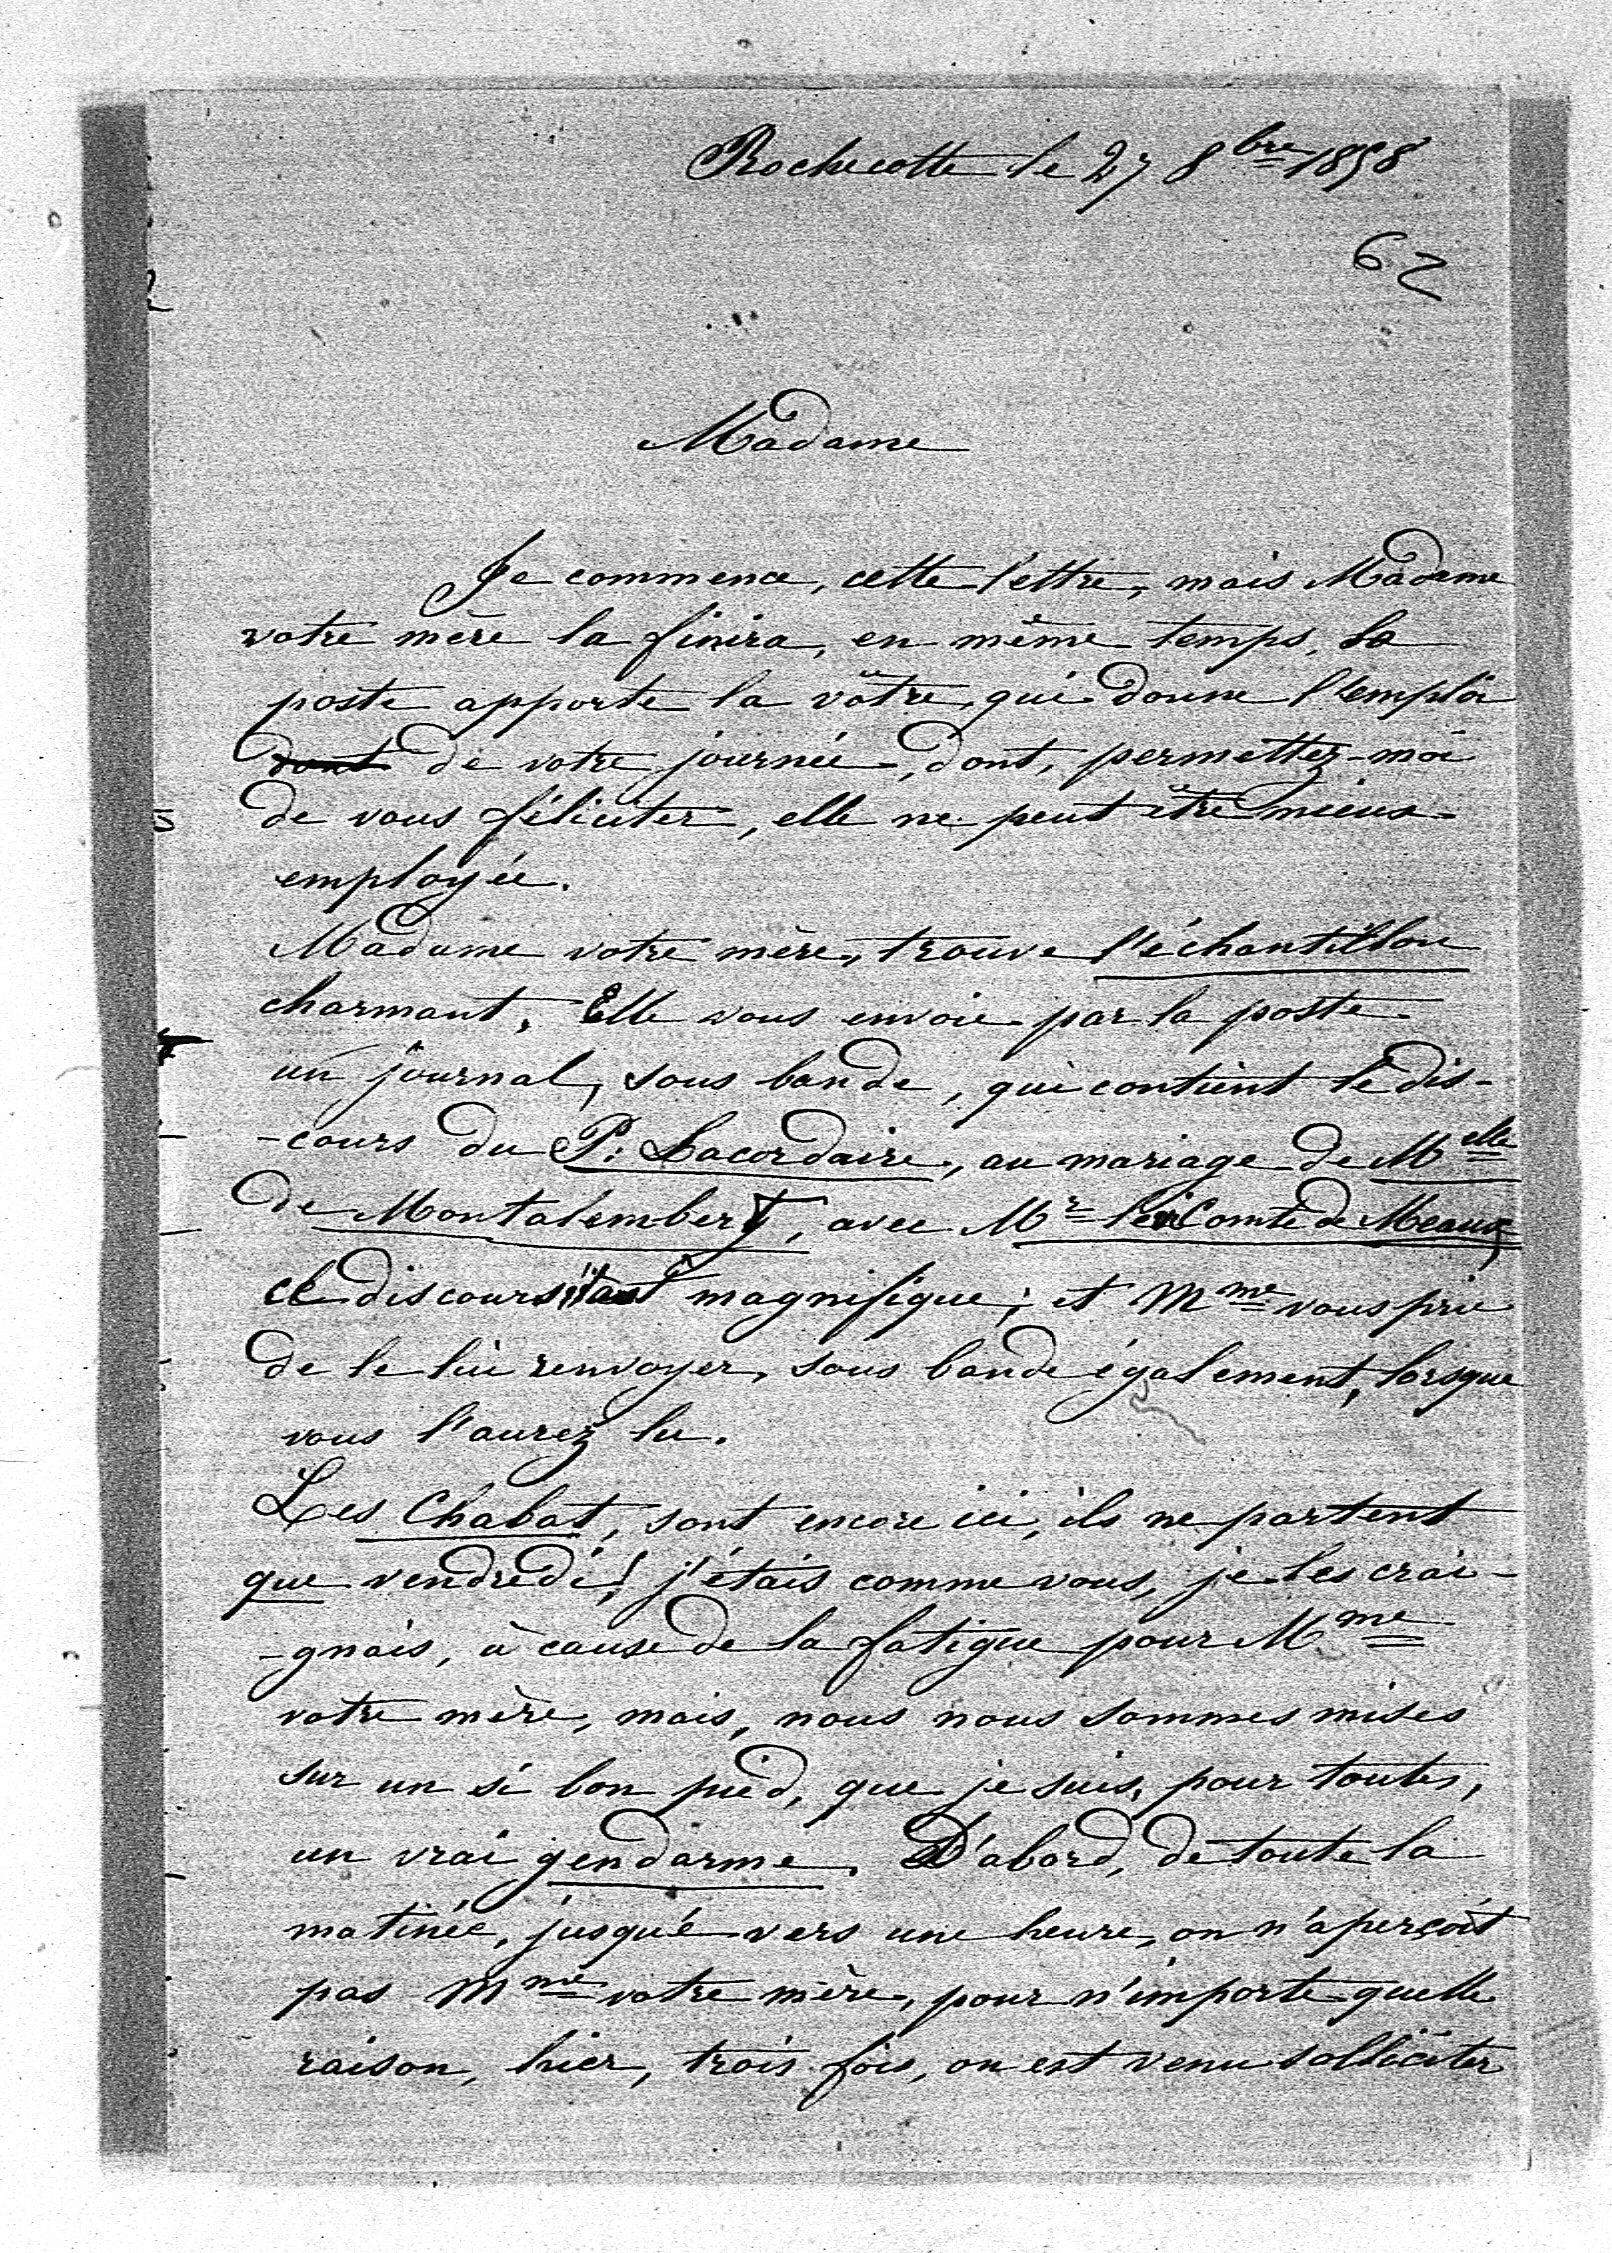 Rochecotte le 27 8bre 1858
62
Madame
Je commence, cette lettre, mais Madame
votre mère la finira, en même temps, la
poste apporte la vôtre, qui donne l'emploi
dont de votre journée, dont, permettez-moi
de vous féliciter, elle ne peut être mieux
employée.
Madame votre mère, trouve l'échantillon
charmant. Elle vous envoie par la poste
un journal, sous bande, qui contient le dis-
-cours du P. Lacordaire, au mariage de Melle
de Montalembert, avec Mr le Vicomte de Meaux,
ce discours était magnifique; et Mme vous prie
de le lui renvoyer, sous bande également, lorsque
vous l'aurez lu.
Les Chabot, sont encore ici, ils ne partent
que vendredi! j'étais comme vous, je les crai-
-gnais, à cause de la fatigue pour Mme
votre mère, mais, nous nous sommes mises
sur un si bon pied, que je suis, pour toutes,
un vrai gendarme. D'abord, de toute la
matinée, jusque vers une heure, on n'aperçoit
pas Mme votre mère, pour n'importe quelle
raison, hier, trois fois, on est venu solliciter